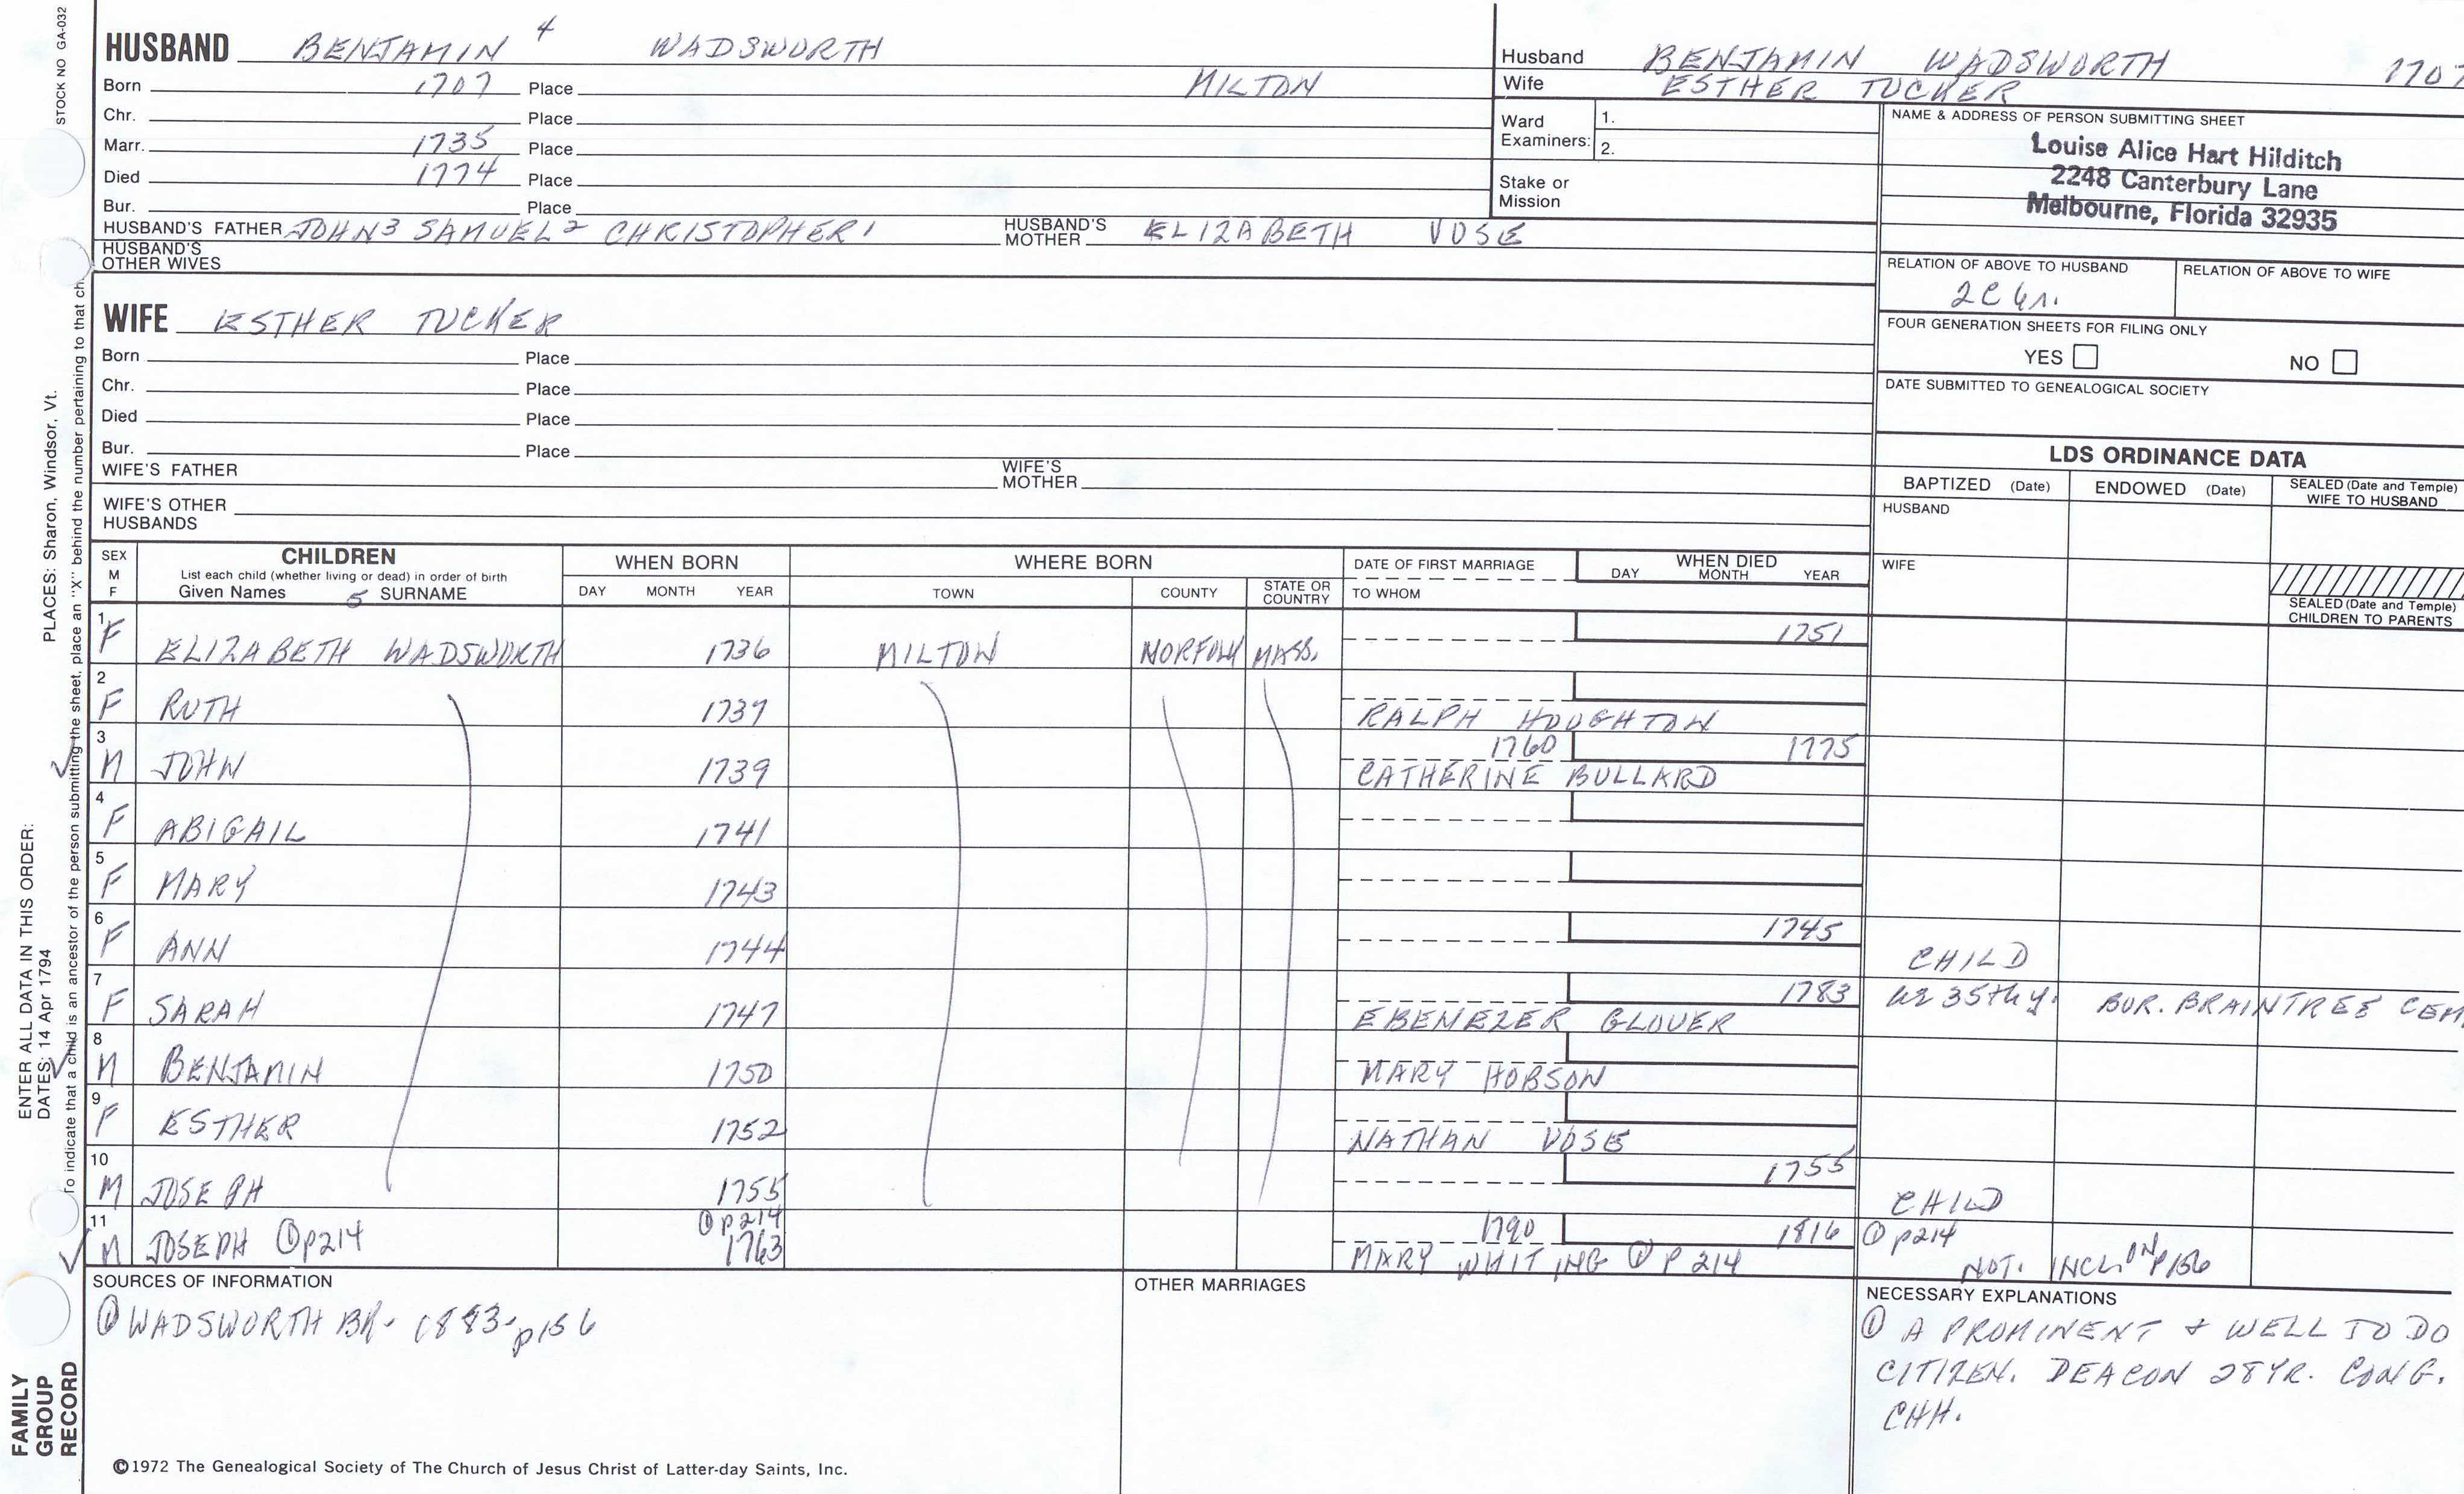 STOCK NO GA-032
HUSBAND BENJAMIN 4 WADSWORTH
Born 1707 Place MILTON
Chr. Place
Marr. 1735 Place
Died 1774 Place
Bur. Place
HUSBAND'S FATHER JOHN3 SAMUEL2 CHRISTOPHER1 HUSBAND'S MOTHER ELIZABETH VOSE
HUSBAND'S OTHER WIVES
WIFE ESTHER TUCKER
Born Place
Chr. Place
Died Place
Bur. Place
WIFE'S FATHER WIFE'S MOTHER
WIFE'S OTHER HUSBANDS
Husband BENJAMIN WADSWORTH 1707
Wife ESTHER TUCKER
Ward Examiners: 1.
2.
Stake or Mission
NAME & ADDRESS OF PERSON SUBMITTING SHEET
Louise Alice Hart Hilditch
2248 Canterbury Lane
Melbourne, Florida 32935
RELATION OF ABOVE TO HUSBAND RELATION OF ABOVE TO WIFE
2C
FOUR GENERATION SHEETS FOR FILING ONLY
YES NO
DATE SUBMITTED TO GENEALOGICAL SOCIETY
LDS ORDINANCE DATA
BAPTIZED (Date) ENDOWED (Date) SEALED (Date and Temple) WIFE TO HUSBAND
HUSBAND
WIFE
SEALED (Date and Temple) CHILDREN TO PARENTS
SEX M F CHILDREN WHEN BORN WHERE BORN DATE OF FIRST MARRIAGE WHEN DIED
List each child (whether living or dead) in order of birth
Given Names 5 SURNAME DAY MONTH YEAR TOWN COUNTY STATE OR COUNTRY TO WHOM DAY MONTH YEAR
1 F ELIZABETH WADSWORTH 1736 MILTON NORFOLK MASS. 1751
2 F RUTH 1737 RALPH HOUGHTON
3 M JOHN 1739 1760 1775 CATHERINE BULLARD
4 F ABIGAIL 1741
5 F MARY 1743
6 F ANN 1744 1745 CHILD
7 F SARAH 1747 1783 EBENEZER GLOVER 35th y. BUR. BRAINTREE CEM
8 M BENJAMIN 1750 MARY HOBSON
9 F ESTHER 1752 NATHAN VOSE
10 M JOSEPH 1755 1755 CHILD
11 M JOSEPH ① p214 ① p214 1763 1790 1816 MARY WHITING ① P 214 ① p214 NOT. INCL. ON P156
SOURCES OF INFORMATION
① WADSWORTH BK. 1883- p156
OTHER MARRIAGES
NECESSARY EXPLANATIONS
① A PROMINENT & WELL TO DO
CITIZEN. DEACON 28YR. CONG.
CHH.
©1972 The Genealogical Society of The Church of Jesus Christ of Latter-day Saints, Inc.
FAMILY
GROUP
RECORD
ENTER ALL DATA IN THIS ORDER:
DATES: 14 Apr 1794 PLACES: Sharon, Windsor, Vt.
To indicate that a child is an ancestor of the person submitting the sheet, place an "X" behind the number pertaining to that ch